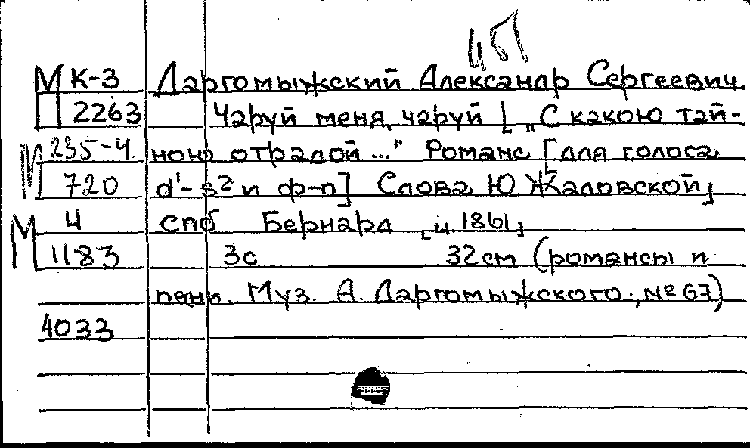 М К-3 Даргомыжский Александр Сергеевич.
П 2263 Чаруй меня, чаруй [„С какою тай-
М 235-4 ною отрадой..." Романс [для голоса
720 d¹-g² и ф-п] Слова Ю Жадовской]
М 4 СПб Бернард [ц. 1861]
1183 3с 32см (романсы и
песни. Муз. А. Даргомыжского., № 67)
4033